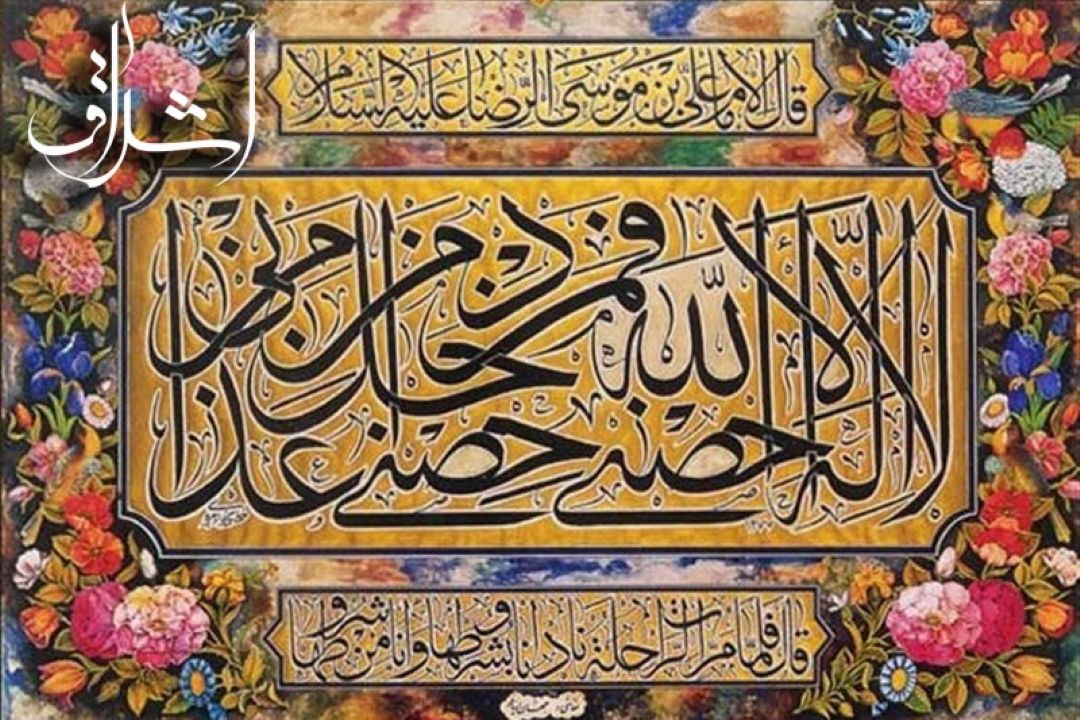 اشراق
قال الامام علی بن موسی الرضا علیه السلام
لا اله الا الله حصنی فمن دخل حصنی امن من عذابی
قال فلما مرت الراحلة نادانا بشروطها و انا من شروطها